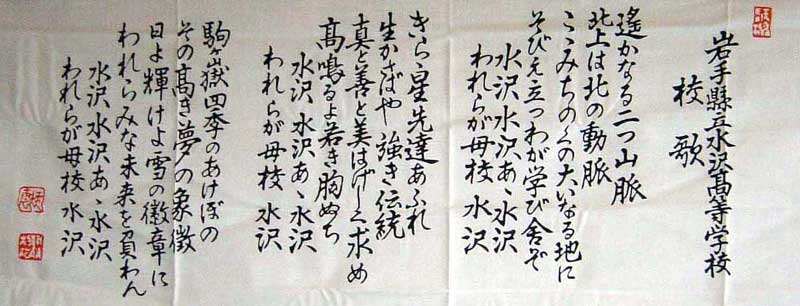 岩手縣立水沢高等学校
校歌
遙かなる二つ山脈
北上は北の動脈
こゝみちのくの大いなる地に
そびえ立つわが学び舎ぞ
水沢水沢あゝ水沢
われらが母校水沢
きら星先達あふれ
生かさばや強き伝統
真と善と美はげしく求め
高鳴るよ若き胸ぬち
水沢水沢あゝ水沢
われらが母校水沢
駒ヶ嶽四季のあけぼの
その高き夢の象徴
日よ輝けよ雪の徽章に
われらみな未来を負わん
水沢水沢あゝ水沢
われらが母校水沢